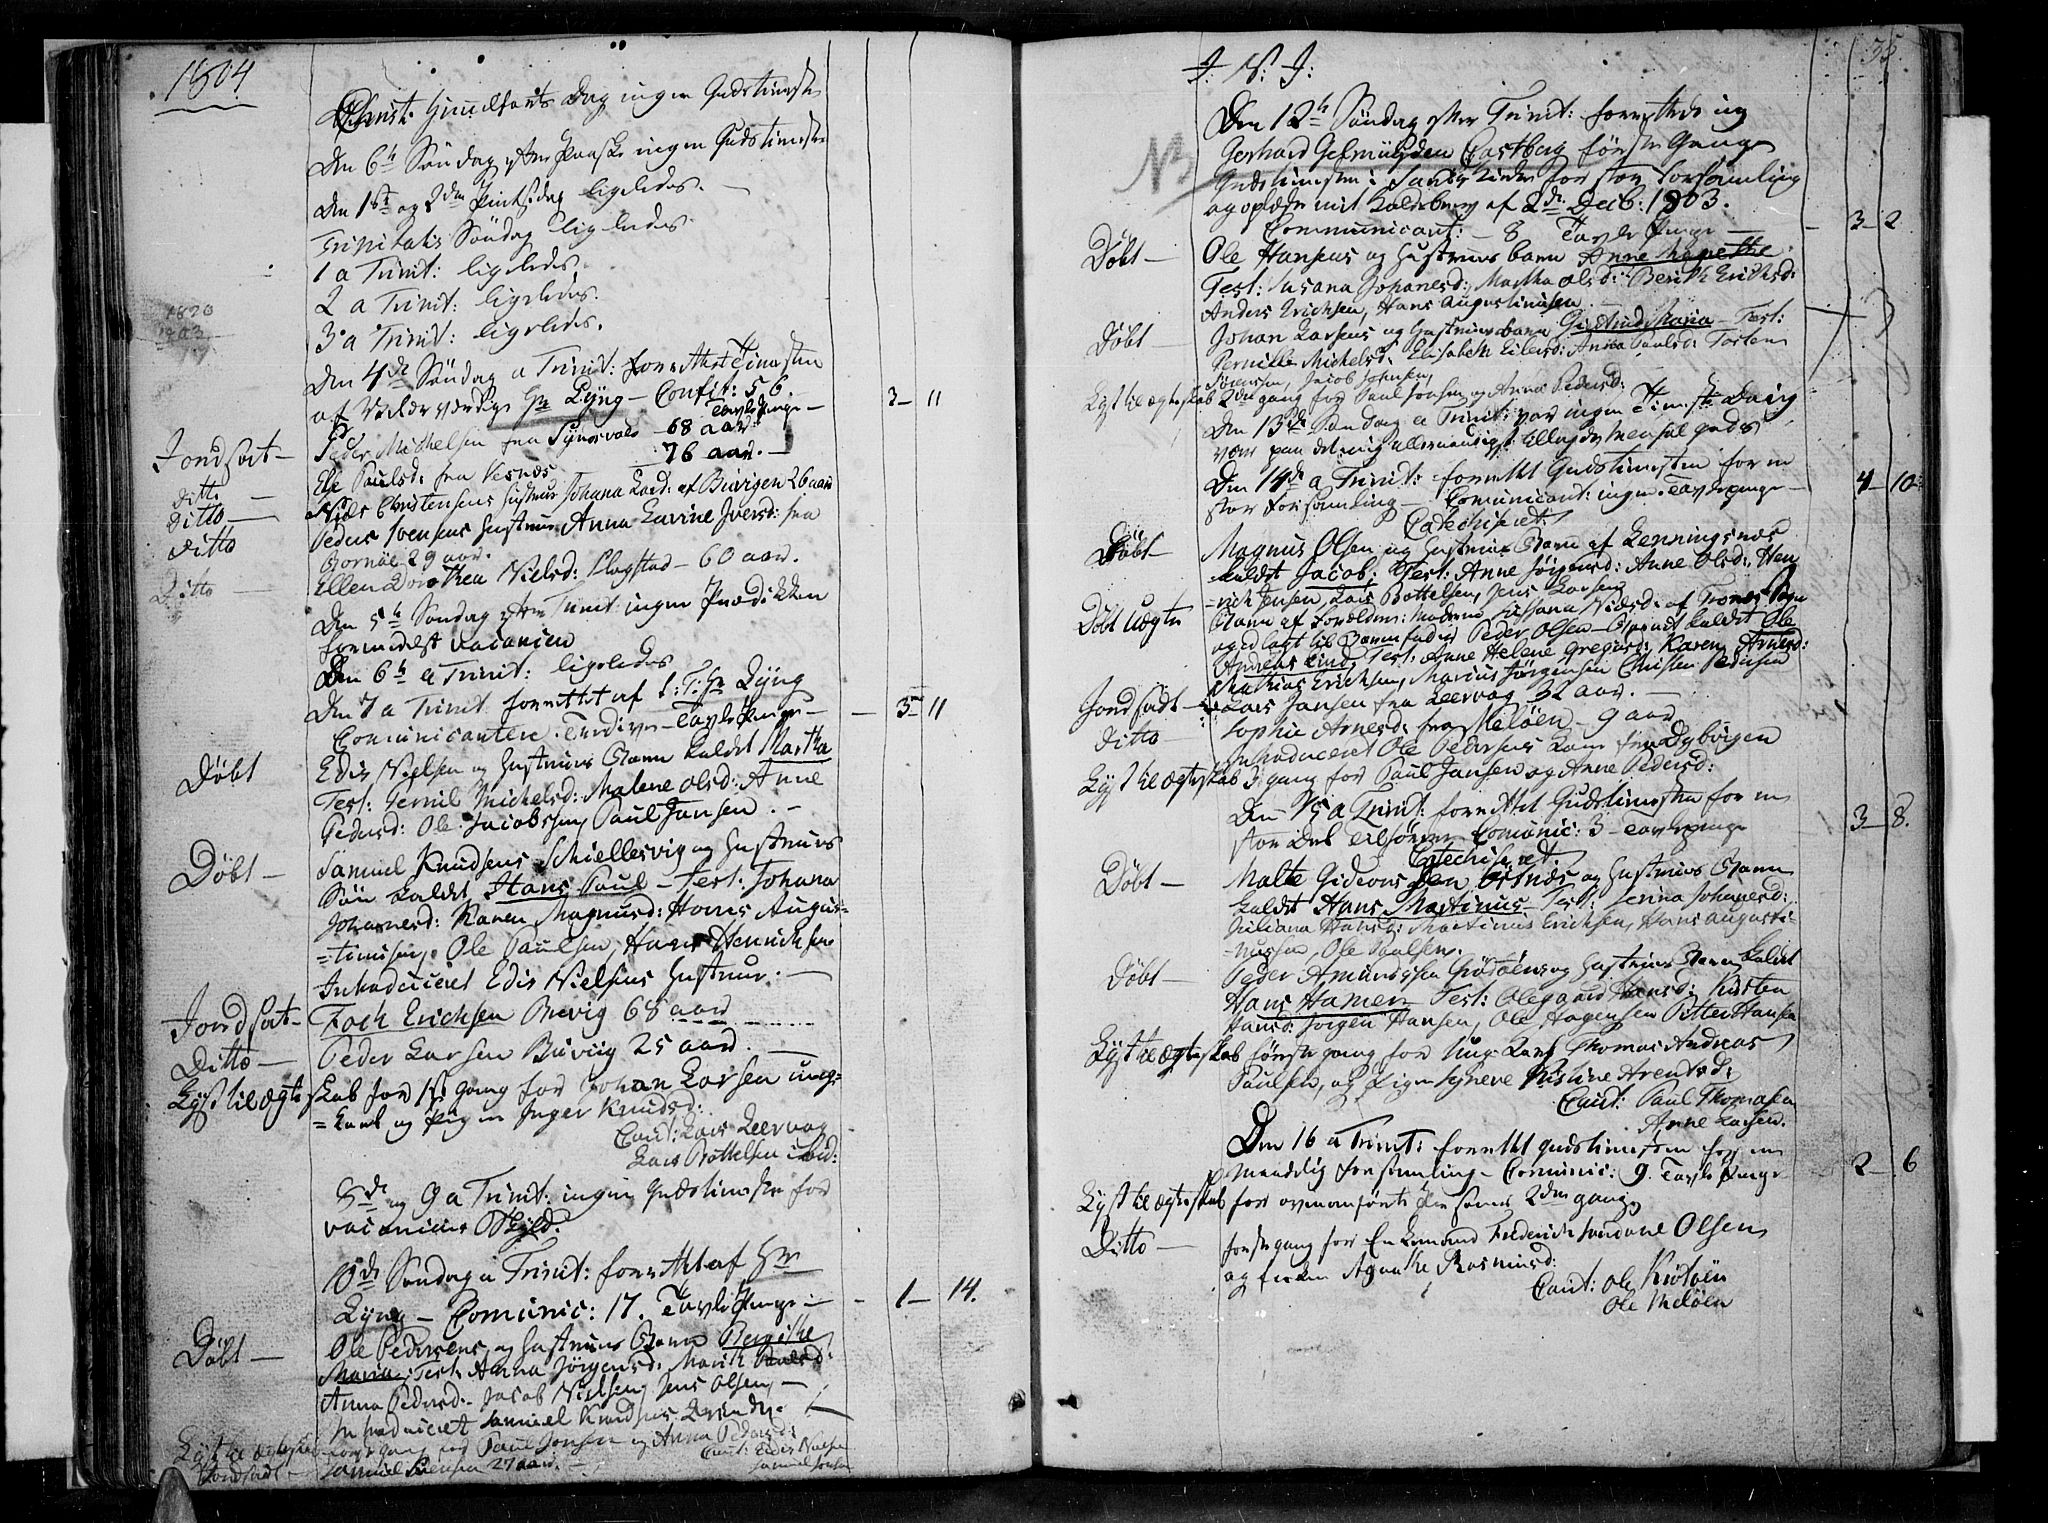 1804
Christi Himelfarts dag ingen Gudstieneste
Den 6te Søndag efter Paaske ingen Gudstieneste
Den 1ste og 2den Pintsedag ligeledes.
Trinitatis Søndag ligeledes
1 a Trinit: ligeledes
2 a Trinit: ligeledes.
3 a Trinit: ligeledes.
Den 4de Søndag a Trinit: forrettet Tienesten
af Velærværdige Hr Lyng – Confit: 56.
Tavle Penge – 3 – 11
Jordfæst – Peder Michelsen fra – 68 aar
ditto – Else Paulsd: fra Vesnes 76 aar. –
Ditto – Niels Christensens Hustrue Johana Lard: af Buvigen 26 aar
ditto Peder Svensens Hustrue Anna Lavine Iversd: fra
Bornöe 29 aar.
Ditto – Ellen Dorothea Nielsd: Slagstad – 60 aar.
Den 5te Søndag efter Trinit: ingen Prædikken
formedelst vacancien
Den 6te a Trinit: ligeledes
Den 7 a Trinit forrettet af S: T: Hr Lyng
Comunicantere Tredive – Tavle Penge – 3 – 11
Döbt Edis Nielsen og Hustrues Barn kaldet Martha
Test: Pernil Michelsd: Malene Olsd: Anne
Pedersd: Ole Jacobssen, Paul Jansen. –
Döbt – Samuel Knudsens Schiellesvig og Hustrues
Sön kaldet Hans Paul – Test: Johana
Johanesd: Karen Magnusd: Hans Augus=
=tinusen, Ole Paulsen, Hans Henrichsen
Introduceret Edis Nielsens Hustrue. –
Jordfæst – Foch Erichsen Brevig 68 aar
Ditto – Peder Larsen Buviig 25 aar. –
Lyst til ægteskab for 1st gang for Johan Larsen ung=
=karl og Pigen Inger Knudsd:
Caut: Lars Leervaag
Lars Bottelsen ibid:
8de og 9 a Trinit: ingen Gudstieneste for
vacanciens Skyld.
10de Søndag a Trinit: forrettet af Hr
Lyng – Comunic: 17. Tavle Penge – 1 – 14.
Döbt – Ole Pedersens og Hustrues Barn Bergithe
Maria. Test: Anna Jörgensd: Marith Paulsd:
Anna Pedersd: Jacob Nielsen, Jens Olsen, –
Introduceret Samuel Knudsens Qvinde. –
Lyst til ægteskab förste gang for Paul Jonsen og Anna Pedersd:
Caut: Edis Nielsen
Samuel Jonsen
Jordfæst – Samuel Svensen 27 aar. –
35
I: N: I:
NB
Den 12te Søndag efter Trinit: forrettede ieg
Gerhard Gelmuyden Castberg förste Gang
Gudstienesten i for stor Forsamling
og oplæste mit Kaldsbrev af 2de Decb: 1803.
Communicant: – 8 Tavle Penge – 3 – 2
Döbt – Ole Hansens og Hustrues barn Anne Marethe
Test: Susana Johanesd: Martha Olsd: Berith Erichsd:
Anders Erichsen, Hans Augustinusen
Döbt – Johan Larsens og Hustrues barn Gertrud Maria – Test:
Pernille Michelsd: Elisabeth Eilersd: Anna Paulsd: Torsten
Sörensen, Jacob Johnsen,
Lyst til ægteskab 2den gang for Paul Jonsen og Anna Pedersd:
Den 13de Søndag a Trinit: var ingen Tieneste da ieg
var paa det mig allernaadigst tillagde Mensal gods
Den 14de a Trinit: forrettet Gudstienesten for en
stor Forsamling – Comunicant: ingen. Tavlepenge – 4 – 10
Catechiseret:
Döbt – Magnus Olsen og Hustrues Barn af Lenningsnæs
kaldet Jacob: Test: Anne Jörgensd: Anne Olsd: Hen
=rich Jensen, Lars Bottelsen, Jens Larsen
Döbt Uægte Barn af Forældrene: Moderen Susana Nielsd: af
udlagt til Barnefader Peder Olsen – Barnet kaldet Ole
Andreas Lind, Test: Anne Helene Gregersd: Karen Arnesd:
Mathias Erichsen, Marcus Jörgensen Christen Pedersen
Jordfæst – Lars Jansen fra Leervog 32 aar. –
ditto – Sophie Arnesd: fra Melöen – 9 aar
Introduceret Ole Pedersens Kone fra Dybvigen
Lyst til ægteskab 3 gang for Paul Jansen og Anne Pedersd:
Den 15 a Trinit: forrettet Gudstienesten for en
stor Deel Tilhörere Comunic: 3 – Tavlepenge 3 – 8.
Catechiseret
Döbt – Malte Gideonsen og Hustrues Barn
kaldet Hans Martinus – Test: Jenna Johanesd:
Juliana Hansd: Martinus Erichsen, Hans Augusti-
-nussen, Ole Paulsen.
Döbt – Peder Amundssen Grödöens og Hustrues Barn kaldet
Hans Hamer – Test: Olegaard Hansd: Kirsten
Hansd: Jörgen Hansen, Ole Hagensen Pitter Hansen
Lyst til ægteskab förste gang for Ung: Karl Thomas Andreas
Paulsen, og Pigen Synneve Kistine Arentsd:
Caut: Paul Thomasen
Arne Larsen.
Den 16 a Trinit: forrettet Gudstienesten for en
maadelig forsamling – Comunic: 9. Tavle Penge – 2 – 6
Lyst til ægteskab for ovenanförte Personer 2den gang
Ditto – förste gang for Enkemand Frederich Olsen
og Enken Agnethe Rasmusd:
Caut: Ole Kiötöen
Ole Melöen